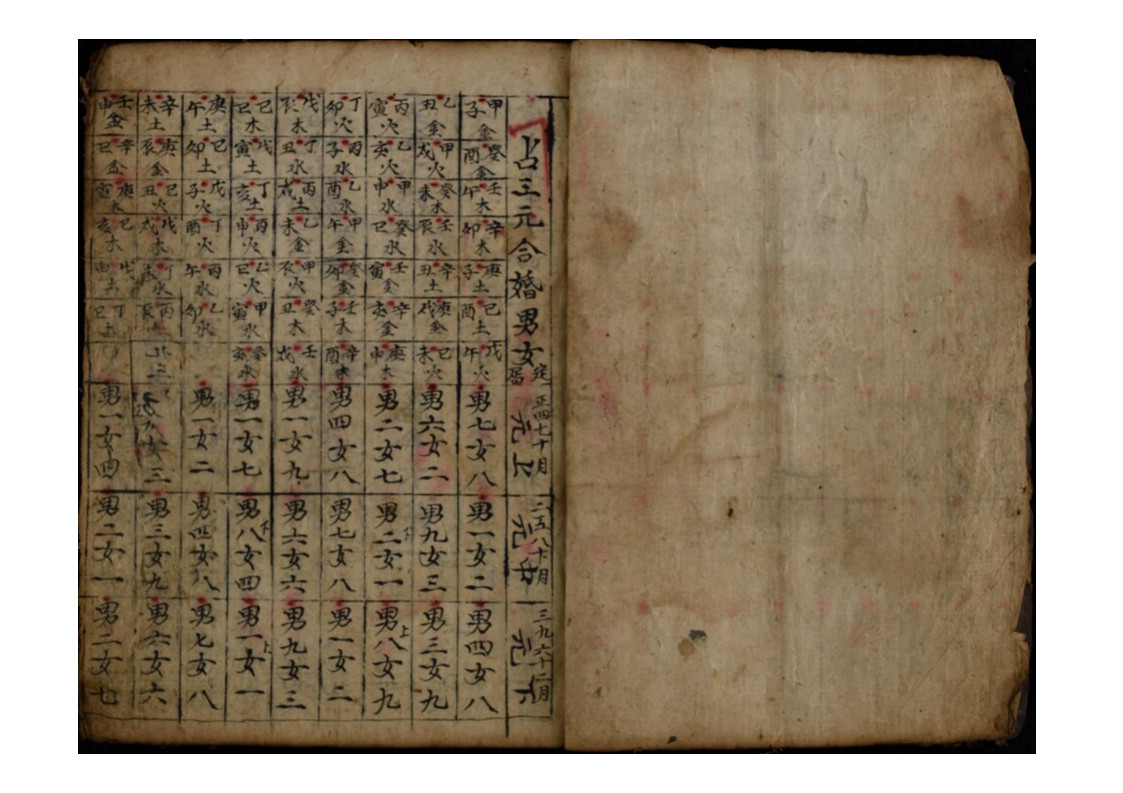 占三元合婚男女定局
正四七十月 上元
二五八十一月 中元
三九六十二月 下元
甲子金 癸酉金 壬午木 辛卯木 庚子土 己酉土 戊午火 男七女八 男一女二 男四女八
乙丑金 甲戌火 癸未木 壬辰水 辛丑土 庚戌金 己未火 男六女二 男九女三 男三女九
丙寅火 乙亥火 甲申水 癸巳水 壬寅金 辛亥金 庚申木 男二女七 男二下女一 男八上女九
丁卯火 丙子水 乙酉水 甲午金 癸卯金 壬子木 辛酉木 男四女八 男七女八 男一女二
戊辰木 丁丑水 丙戌土 乙未金 甲辰火 癸丑木 壬戌水 男一女九 男六女六 男九女三
己巳木 戊寅土 丁亥土 丙申火 乙巳火 甲寅水 癸亥水 男一女七 男八下女四 男一上女一
庚午土 己卯土 戊子火 丁酉火 丙午水 乙卯水 男一女二 男四女八 男七女八
辛未土 庚辰金 己丑火 戊戌木 丁未水 丙辰 女三 男三女九 男六女六
壬申金 辛巳金 庚寅木 己亥木 戊申土 丁巳土 男一女四 男二女一 男二女七